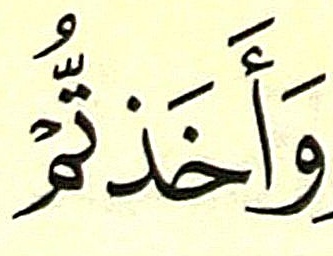 وَأَخَذْتُّمْ